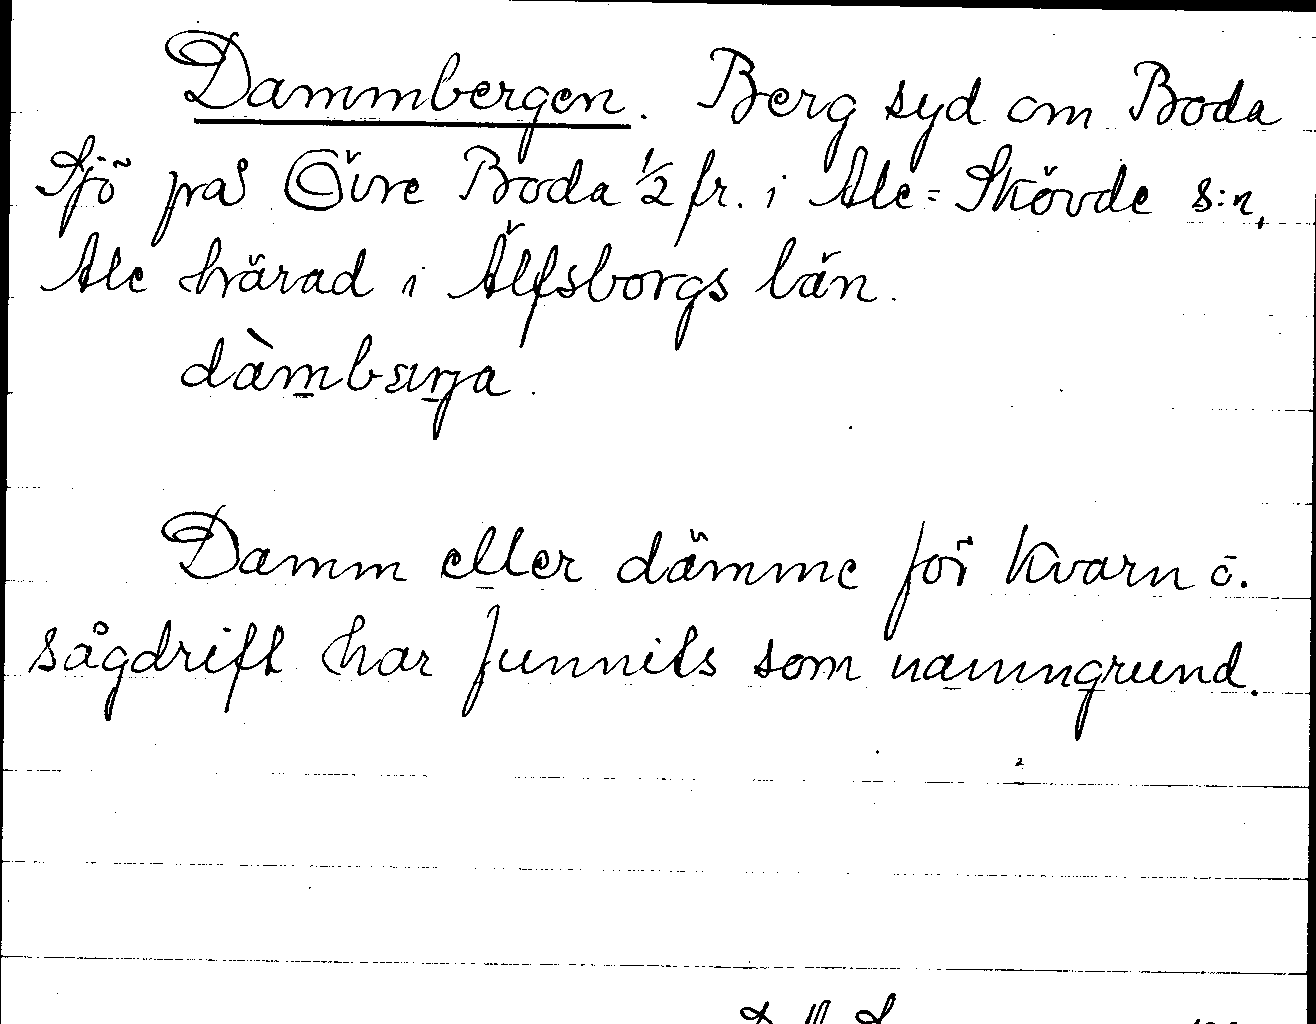 Dammbergen. Berg syd om Boda
Sjö på Övre Boda 1/2 fr. i Ale=Skövde s:n,
Ale härad i Älfsborgs län.
Damm eller dämme för kvarn o.
sågdrift har funnits som namngrund.